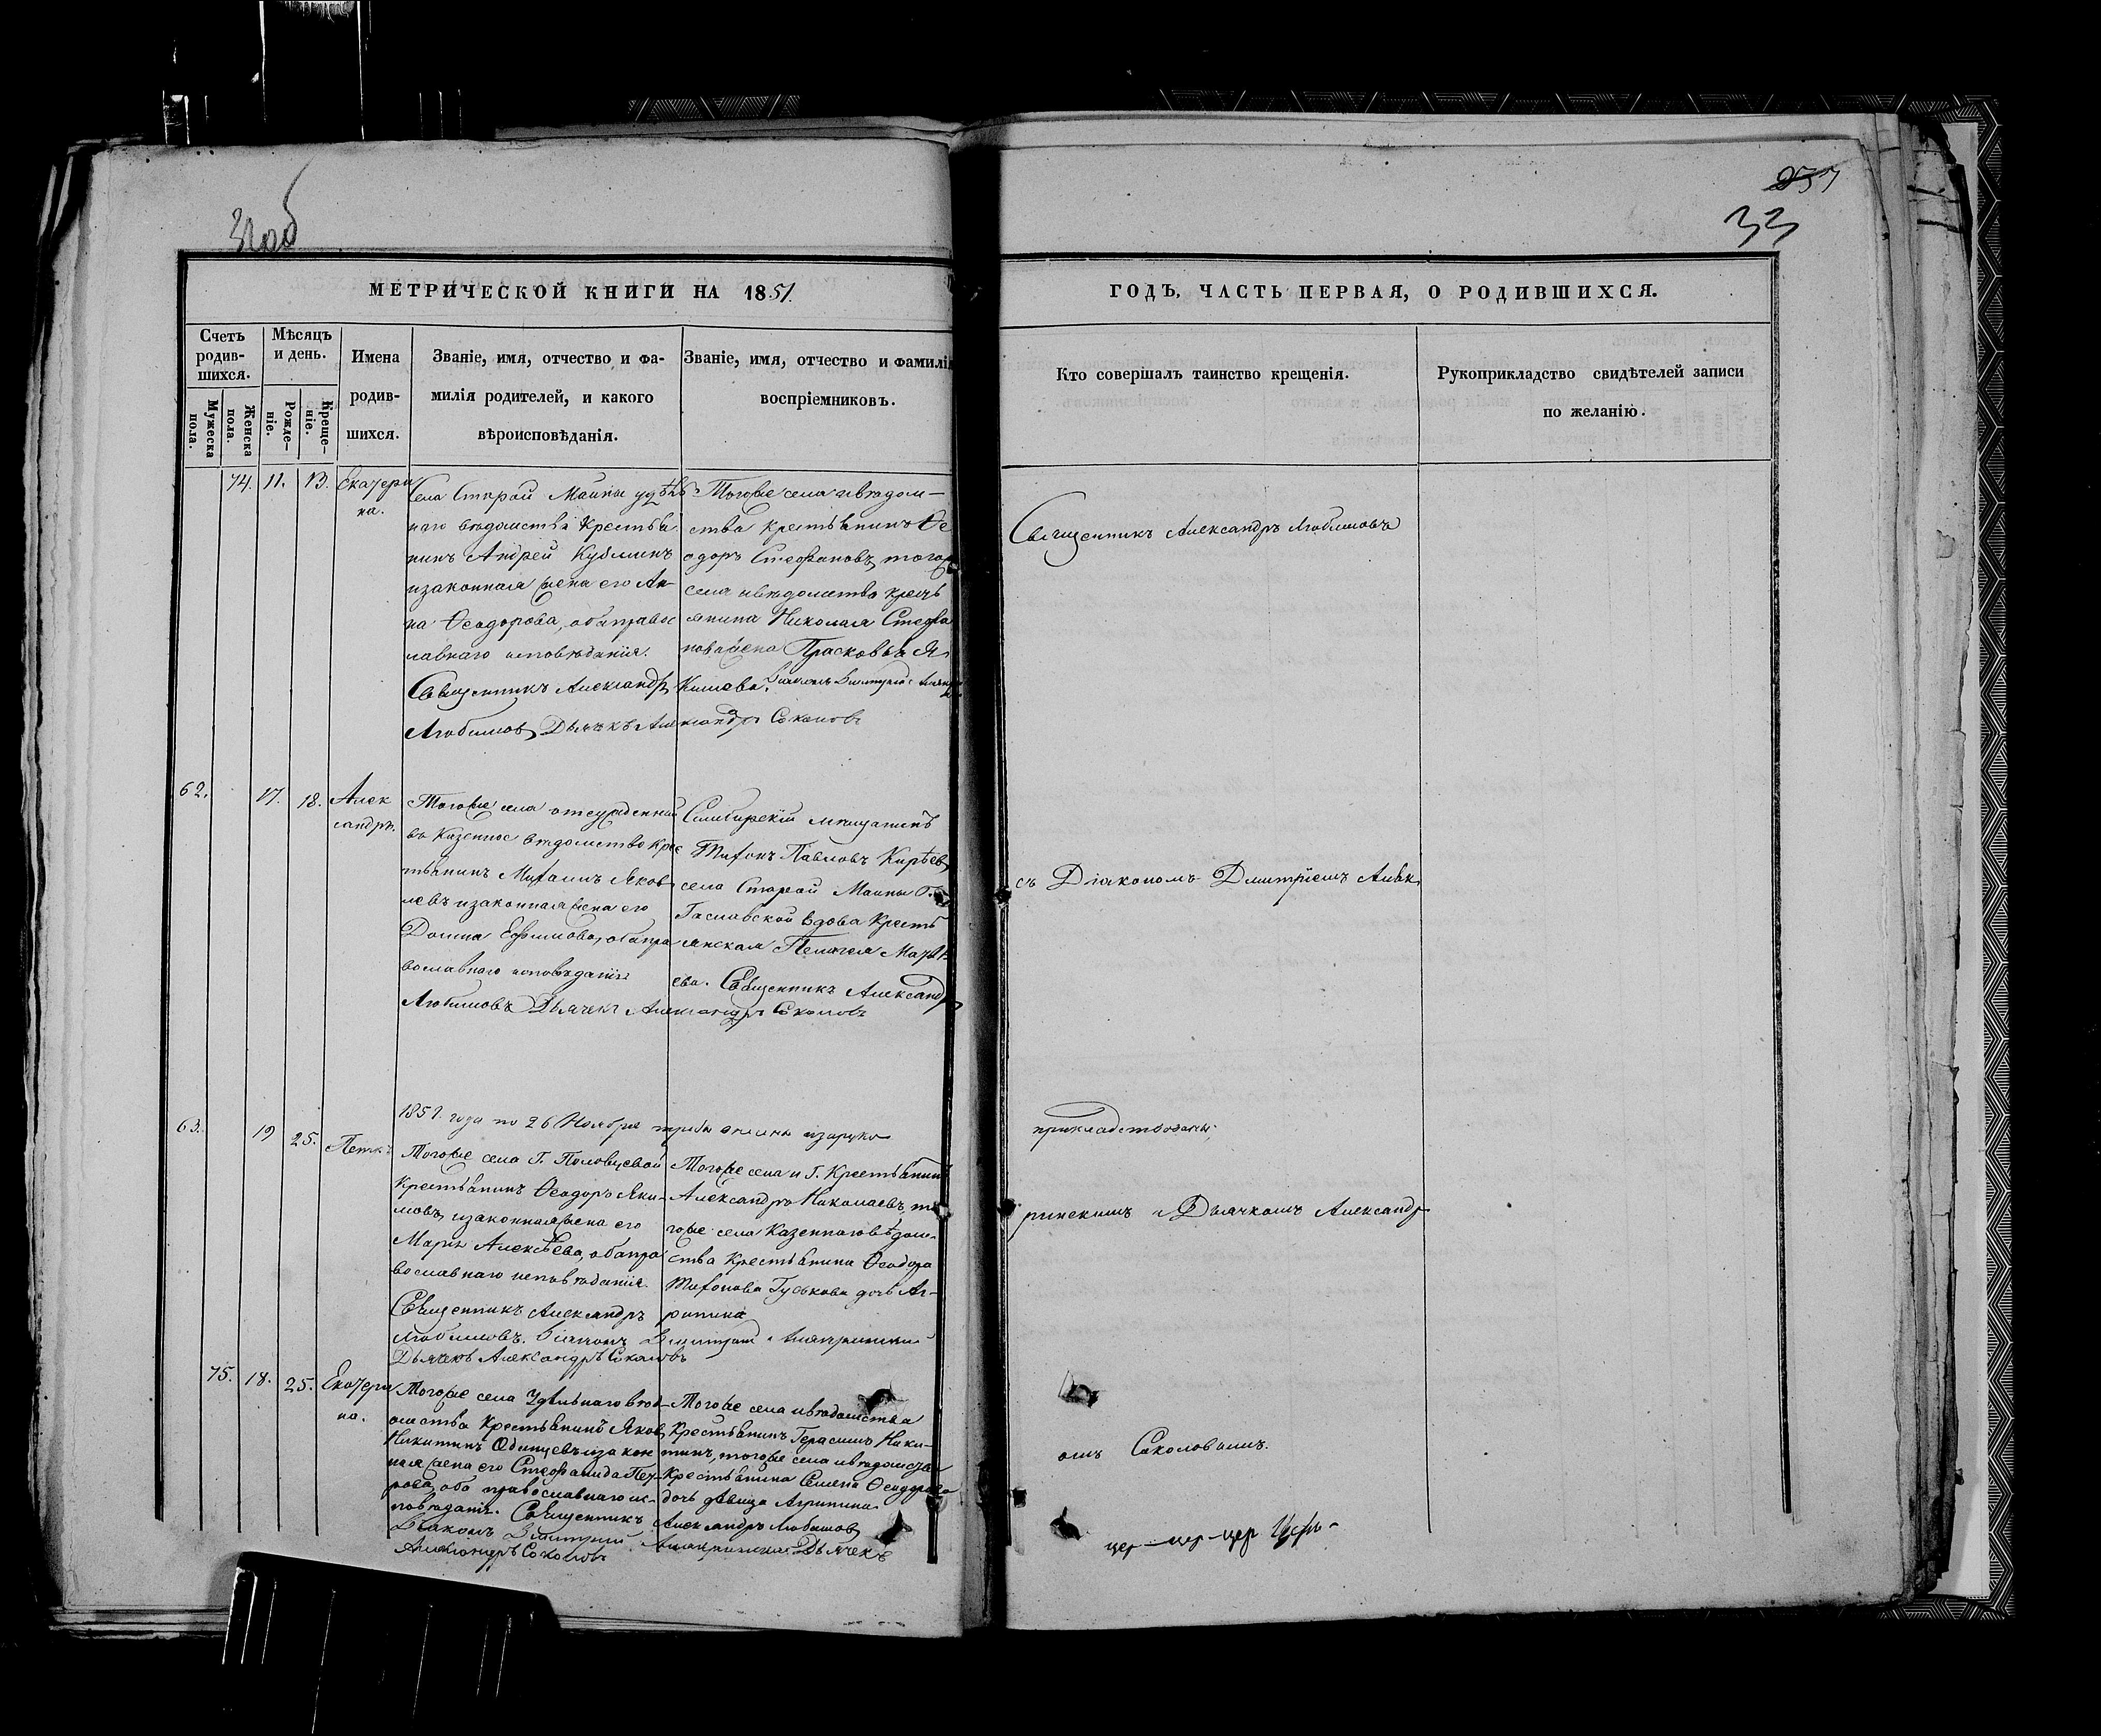 32об
257
33
МЕТРИЧЕСКОЙ КНИГИ НА 1851.
ГОДЪ, ЧАСТЬ ПЕРВАЯ, О РОДИВШИХСЯ.
Счетъ родив-шихся.
Мѣсяцъ и день.
Мужеска пола.
Женска пола.
Рожде-ніе.
Креще-ніе.
Имена родив-шихся.
Званіе, имя, отчество и фа-
милія родителей, и какого
вѣроисповѣданія.
Званіе, имя, отчество и фамилія
воспріемниковъ.
Кто совершалъ таинство крещенія.
Рукоприкладство свидѣтелей записи
по желанію.
74. 11. 13. Екатери
на.
Села Старой Маины удѣль
наго вѣдомства Крестья
нинъ Андрей Кузминъ
изаконная жена его Ан-
на Ѳеодорова, оба право
славнаго исповѣданія.
Священникъ Александръ
Любимовъ Дьячекъ Александръ Соколовъ
Тогоже села ивѣдом-
ства крестьянинъ Ѳе
одоръ Стефановъ, тогоже
села ивѣдомства кресть
янина Николая Стефа
нова жена Прасковья Я
кимова.
Священникъ Александръ Любимовъ
62. 17. 18. Алек
сандръ.
Тогоже села отсужденный
въ Казенное вѣдомство крес
тьянинъ Михаилъ Яков
левъ изаконная жена его
Домна Ефимова, оба пра
вославнаго исповѣданія
Любимовъ Дьячекъ Александръ Соколовъ
Симбирскій мѣщанинъ
Тихонъ Павловъ Кирѣевъ,
села Старой Маины Г.
вдова Кресть
янская Пелагея Матвѣ
ева. Священникъ Александръ
съ Діакономъ Дмитріемъ Алак
1851 года по 26 Ноября
прикладствованы;
63. 19 25. Петръ
Тогоже села Г. Половцевой
Крестьянинъ Ѳеодоръ Яки-
мовъ, изаконная жена его
Марья Алексѣева, оба пра
вославнаго исповѣданія.
Священникъ Александръ
Любимовъ. Діаконъ Димитрій Алакринскій
Дьячекъ Александръ Соколовъ
Тогоже села и Г. Крестьянинъ
Александръ Николаевъ, то
гоже села Казеннаго вѣдом-
ства крестьянина Ѳеодора
Тихонова Гуськова дочь Аг-
рипина
ринскимъ и Дьячкомъ Александр
75. 18. 25. Екатери
на.
Тогоже села Удѣльнаго вѣд-
омства Крестьянинъ Яковъ
Никитинъ Одинцевъ изакон
ная жена его Стефанида Пет-
рова, оба православнаго ис-
повѣданія. Священникъ Александръ Любимовъ
Діаконъ Димитрій Алакринскій Дьячекъ
Александръ Соколовъ
Тогоже села ивѣдомства
Крестьянинъ Герасимъ Ники-
тинъ, тогоже села ивѣдомства
Крестьянина Семена Ѳеодорова
дочь дѣвица Агрипина
омъ Соколовымъ.